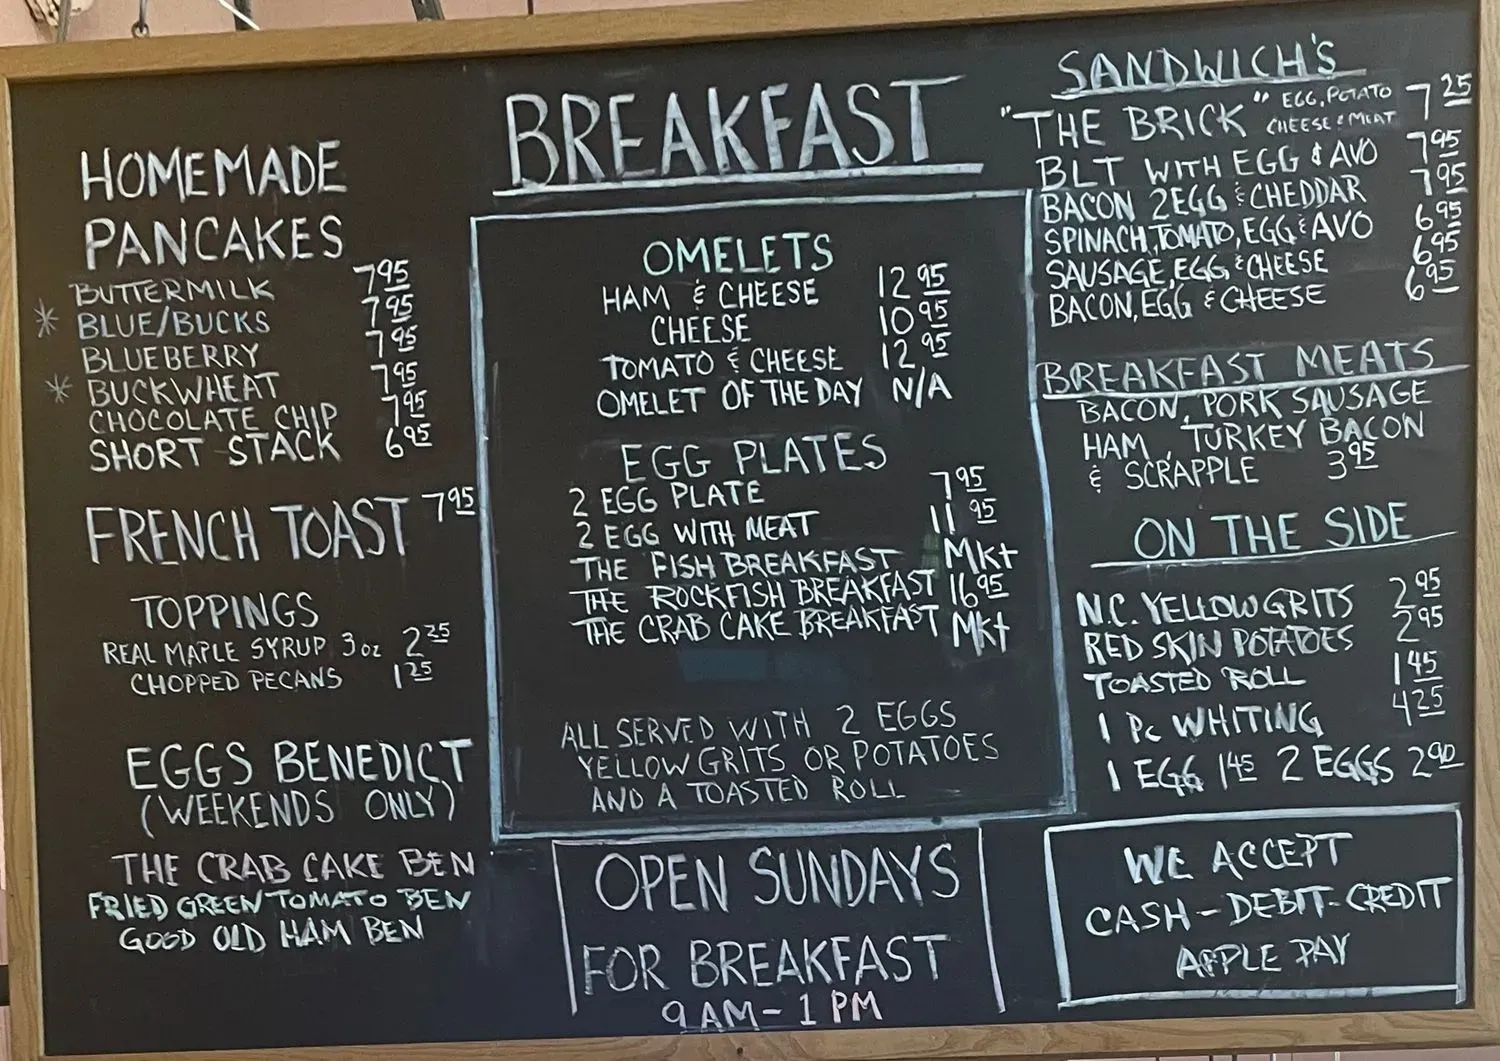 BREAKFAST
HOMEMADE
PANCAKES
BUTTERMILK 7.95
* BLUE/BUCKS 7.95
BLUEBERRY 7.95
* BUCKWHEAT 7.95
CHOCOLATE CHIP 7.95
SHORT STACK 6.95
FRENCH TOAST 7.95
TOPPINGS
REAL MAPLE SYRUP 3 oz 2.25
CHOPPED PECANS 1.25
EGGS BENEDICT
(WEEKENDS ONLY)
THE CRAB CAKE BEN
FRIED GREEN TOMATO BEN
GOOD OLD HAM BEN
OMELETS
HAM & CHEESE 12.95
CHEESE 10.95
TOMATO & CHEESE 12.95
OMELET OF THE DAY N/A
EGG PLATES
2 EGG PLATE 7.95
2 EGG WITH MEAT 11.95
THE FISH BREAKFAST Mkt
THE ROCKFISH BREAKFAST 16.95
THE CRAB CAKE BREAKFAST Mkt
ALL SERVED WITH 2 EGGS
YELLOW GRITS OR POTATOES
AND A TOASTED ROLL
OPEN SUNDAYS
FOR BREAKFAST
9 AM - 1 PM
SANDWICH'S
"THE BRICK" EGG, POTATO CHEESE & MEAT 7.25
BLT WITH EGG & AVO 7.95
BACON 2 EGG & CHEDDAR 7.95
SPINACH, TOMATO, EGG & AVO 6.95
SAUSAGE, EGG & CHEESE 6.95
BACON, EGG & CHEESE 6.95
BREAKFAST MEATS
BACON, PORK SAUSAGE
HAM, TURKEY BACON
& SCRAPPLE 3.95
ON THE SIDE
N.C. YELLOW GRITS 2.95
RED SKIN POTATOES 2.95
TOASTED ROLL 1.45
1 Pc WHITING 4.25
1 EGG 1.45 2 EGGS 2.90
WE ACCEPT
CASH - DEBIT - CREDIT
APPLE PAY